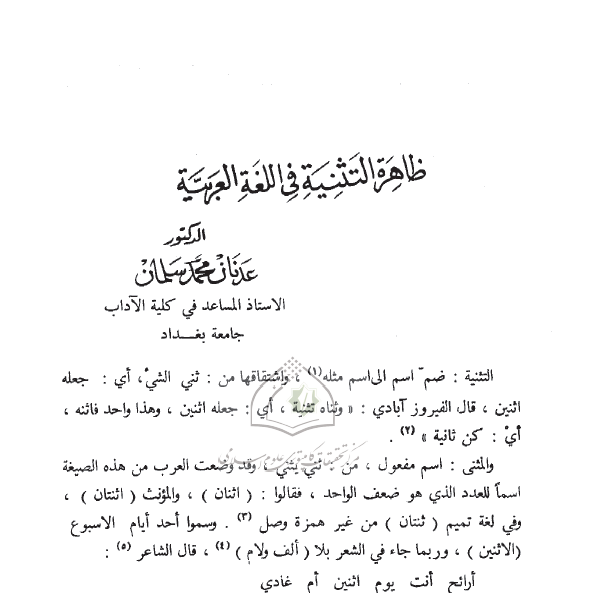 ظاهرة التثنية في اللغة العربية
الدكتور
عدنان محمد سلمان
الاستاذ المساعد في كلية الآداب
جامعة بغـــداد
التثنية : ضمّ اسم الى اسم مثله(١) ، واشتقاقها من : ثني الشيْ، أي : جعله
اثنين ، قال الفيروز آبادي : « وثناه تثنية ، أي : جعله اثنين ، وهذا واحد فاثنه ،
أيْ : كن ثانية » (٢) .
والمثنى : اسم مفعول ، من : ثني يثني ، وقد وضعت العرب من هذه الصيغة
اسماً للعدد الذي هو ضعف الواحد ، فقالوا : ( اثنان ) ، والمؤنث ( اثنتان ) ،
وفي لغة تميم ( ثنتان ) من غير همزة وصل (٣) . وسموا أحد أيام الاسبوع
(الاثنين ) ، وربما جاء في الشعر بلا ( ألف ولام ) (٤) ، قال الشاعر (٥) :
أرائح أنت يوم اثنين أم غادي